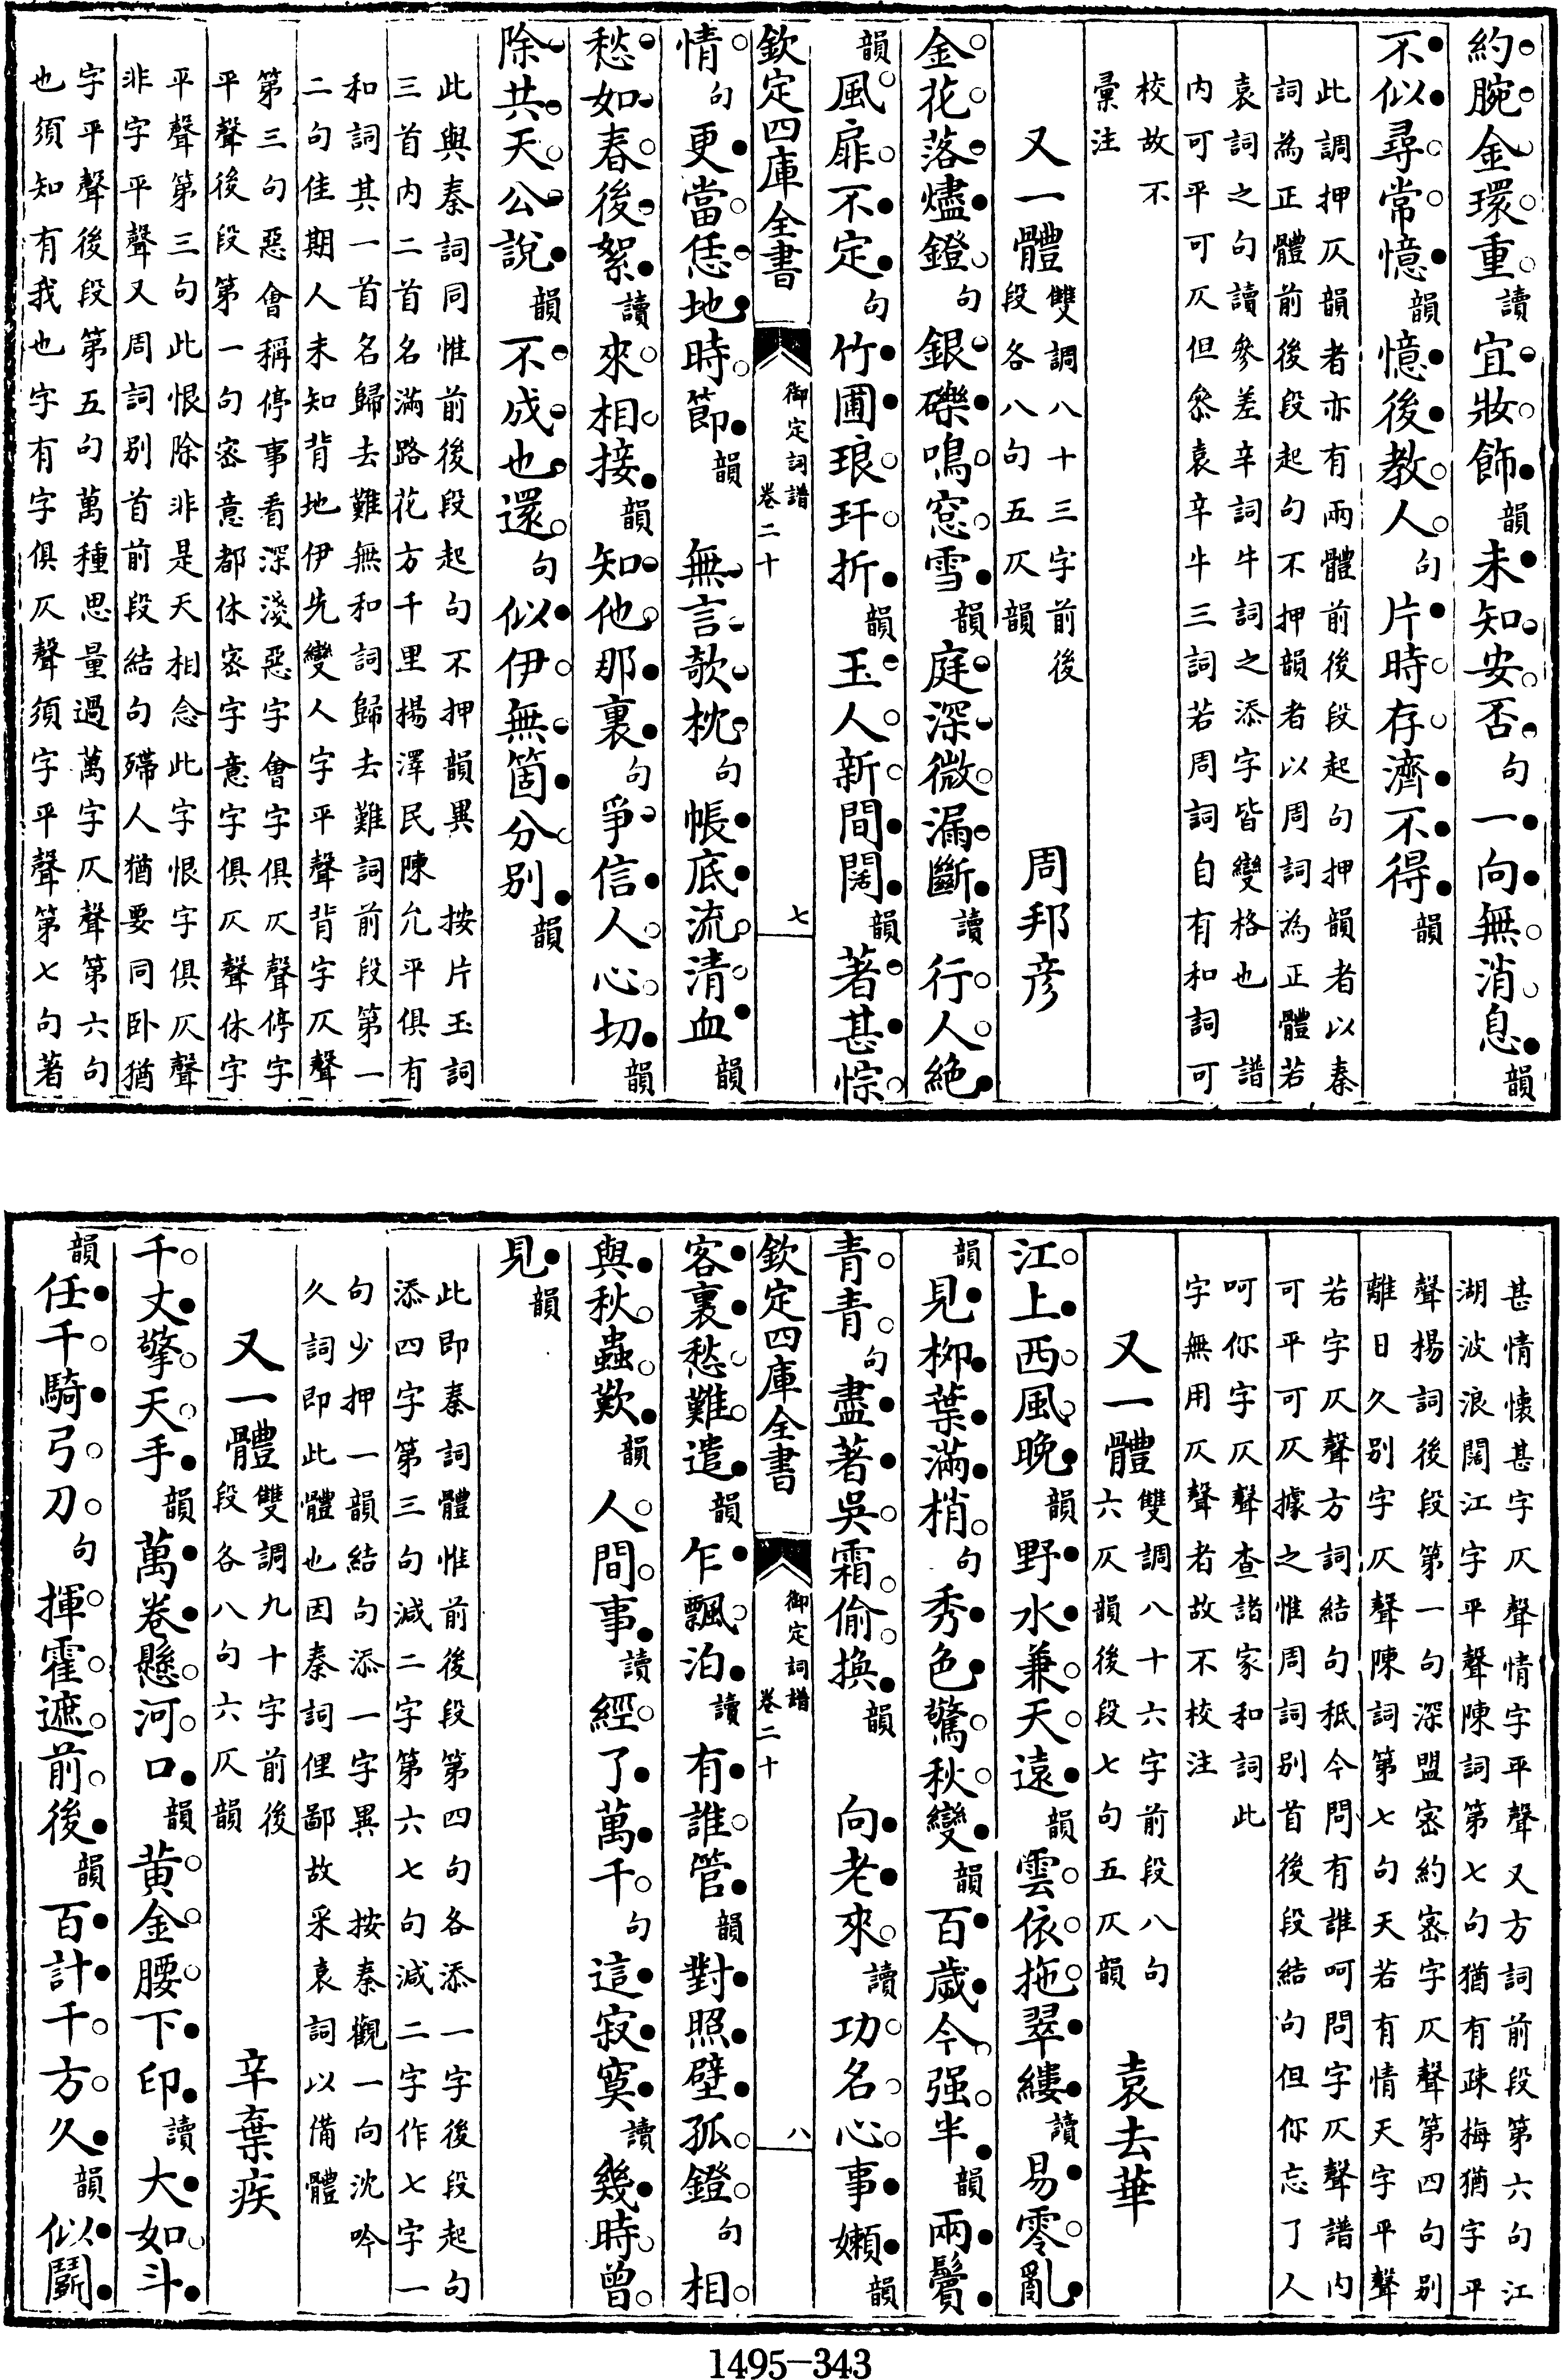 約腕金環重讀宜妝飾韻未知安否句一向無消息韻
不似尋常憶韻憶後教人句片時存濟不得韻
此調押仄韻者亦有兩體前後段起句押韻者以秦
詞為正體前後段起句不押韻者以周詞為正體若
袁詞之句讀參差辛詞牛詞之添字皆變格也　譜
内可平可仄但叅袁辛牛三詞若周詞自有和詞可
校故不
彚注
又一體雙調八十三字前後
段各八句五仄韻　周邦彦
金花落燼鐙句銀礫鳴窓雪韻庭深微漏斷讀行人絶
韻風扉不定句竹圃琅玕折韻玉人新間闊韻著甚悰
欽定四庫全書　御定詞譜　卷二十　七
情句更當恁地時節韻　無言欹枕句帳底流清血韻
愁如春後絮讀來相接韻知他那裏句爭信人心切韻
除共天公說韻不成也還句似伊無箇分别韻
此與秦詞同惟前後段起句不押韻異　按片玉詞
三首内二首名滿路花方千里揚澤民陳允平俱有
和詞其一首名歸去難無和詞歸去難詞前段第一
二句佳期人未知背地伊先變人字平聲背字仄聲
第三句惡會稱停事看深淺惡字會字俱仄聲停字
平聲後段第一句宻意都休宻字意字俱仄聲休字
平聲第三句此恨除非是天相念此字恨字俱仄聲
非字平聲又周詞别首前段結句殢人猶要同卧猶
字平聲後段第五句萬種思量過萬字仄聲第六句
也須知有我也字有字俱仄聲須字平聲第七句著
甚情懷甚字仄聲情字平聲又方詞前段第六句江
湖波浪闊江字平聲陳詞第七句猶有疎梅猶字平
聲揚詞後段第一句深盟宻約宻字仄聲第四句别
離日久别字仄聲陳詞第七句天若有情天字平聲
若字仄聲方詞結句秪今問有誰呵問字仄聲譜内
可平可仄據之惟周詞别首後段結句但你忘了人
呵你字仄聲查諸家和詞此
字無用仄聲者故不校注
又一體雙調八十六字前段八句
六仄韻後段七句五仄韻　袁去華
江上西風晚韻野水兼天遠韻雲依拖翠縷讀易零亂
韻見栁葉滿梢句秀色驚秋變韻百歲今强半韻兩鬢
青青句盡著吳霜偷換韻　向老來讀功名心事嬾韻
欽定四庫全書　御定詞譜　卷二十　八
客裏愁難遣韻乍飄泊讀有誰管韻對照壁孤鐙句相
與秋蟲歎韻人間事讀經了萬千句這寂寞讀幾時曾
見韻
此即秦詞體惟前後段第四句各添一字後段起句
添四字第三句減二字第六七句減二字作七字一
句少押一韻結句添一字異　按秦觀一向沈吟
久詞即此體也因秦詞俚鄙故采袁詞以備體
又一體雙調九十字前後
段各八句六仄韻　辛棄疾
千丈擎天手韻萬卷懸河口韻黄金腰下印讀大如斗
韻任千騎弓刀句揮霍遮前後韻百計千方久韻似鬭
1495-343